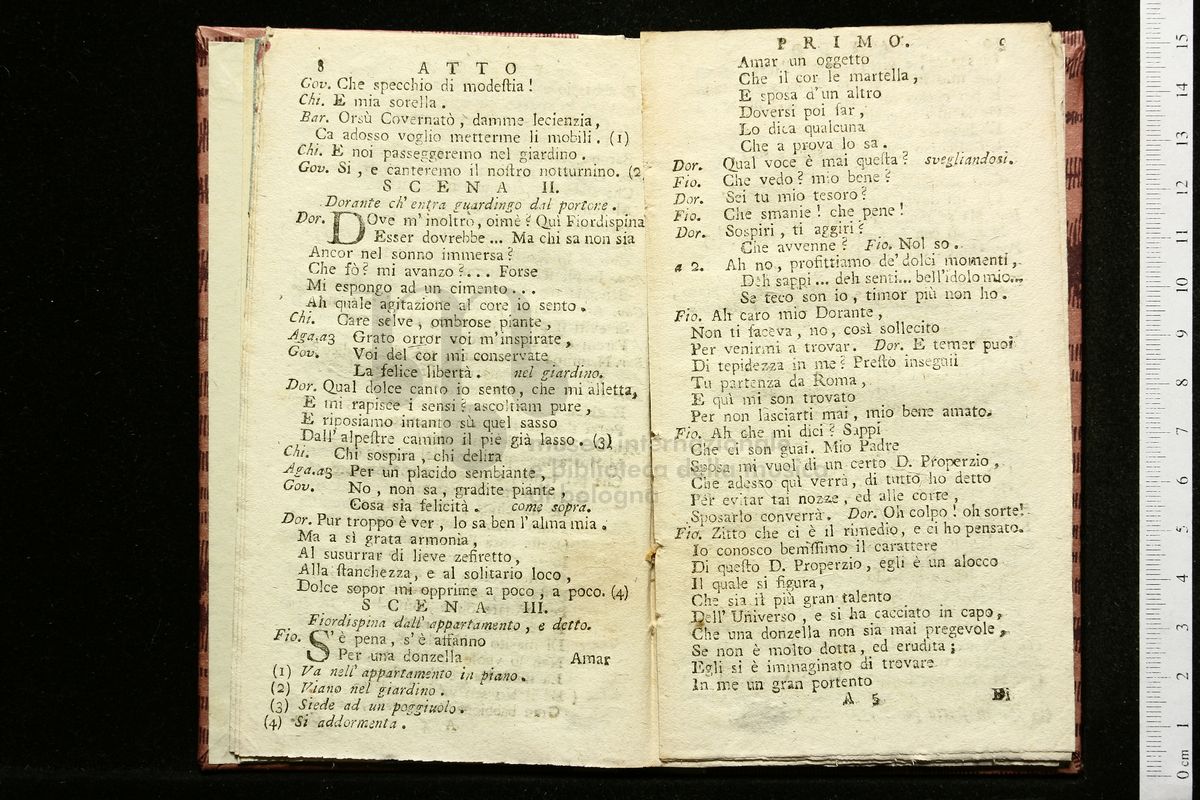 8 ATTO
Gov. Che specchio di modeſtia!
Chi. E mia sorella.
Bar. Orsù Covernatò, damme lecienzia,
Ca adosso voglio metterme li mobili. (1)
Chi. E noi passeggeremo nel giardino.
Gov. Si, e canteremo il noſtro notturnino. (2
SCENA II.
Dorante ch' entra guardingo dal portone.
Dor. DOve m' inoltro, oimè? Quì Fiordispina
Esser dovrebbe... Ma chi sa non sia
Ancor nel sonno immersa?
Che fò? mi avanzo?... Forse
Mi espongo ad un cimento...
Ah quale agitazione al core io sento.
Chi. Care selve, ombrose piante,
Aga.a3 Grato orror voi m'inspirate,
Gov. Voi del cor mi conservate
La felice libertà. nel giardino.
Dor. Qual dolce canto io sento, che mi alletta,
E mi rapisce i sensi? ascoltiam pure,
E riposiamo intanto sù quel sasso
Dall' alpeſtre camino il piè già lasso. (3)
Chi. Chi sospira, chi delira
Aga.a3 Per un placido sembiante,
Gov. No, non sa, gradite piante,
Cosa sia felicità. come sopra.
Dor. Pur troppo è ver, lo sa ben l'alma mia.
Ma a sì grata armonia,
Al susurrar di lieve zefiretto,
Alla ſtanchezza, e al solitario loco,
Dolce sopor mi opprime a poco, a poco. (4)
SCENA III.
Fiordispina dall' appartamento, e detto.
Fio. S' è pena, s' è affanno
Per una donzella Amar
(1) Va nell' appartamento in piano.
(2) Viano nel giardino.
(3) Siede ad un poggiuolo.
(4) Si addormenta.
PRIMO. 9
Amar un oggetto
Che il cor le martella,
E sposa d'un altro
Doversi poi far,
Lo dica qualcuna
Che a prova lo sa.
Dor. Qual voce è mai queſta? svegliandosi.
Fio. Che vedo? mio bene?
Dor. Sei tu mio tesoro?
Fio. Che smanie! che pene!
Dor. Sospiri, ti aggiri?
Che avvenne? Fio. Nol so.
a 2. Ah no, profittiamo de' dolci momenti,
Deh sappi... deh senti... bell'idolo mio...
Se teco son io, timor più non ho.
Fio. Ah caro mio Dorante,
Non ti faceva, no, così sollecito
Per venirmi a trovar. Dor. E temer puoi
Di tepidezza in me? Preſto inseguii
Tu partenza da Roma,
E quì mi son trovato
Per non lasciarti mai, mio bene amato.
Fio. Ah che mi dici? Sappi
Che ci son guai. Mio Padre
Sposa mi vuol di un certo D. Properzio,
Che adesso quì verrà, di tutto ho detto
Per evitar tai nozze, ed alle corte,
Sposarlo converrà. Dor. Oh colpo! oh sorte!
Fio. Zitto che ci è il rimedio, e ci ho pensato.
Io conosco beniſſimo il carattere
Di queſto D. Properzio, egli è un alocco
Il quale si figura,
Che sia il più gran talento
Dell' Universo, e si ha cacciato in capo,
Che una donzella non sia mai pregevole,
Se non è molto dotta, ed erudita;
Egli si è immaginato di trovare
In me un gran portento
A 5 Di
museo internazionale
e biblioteca della musica
di bologna
15
14
13
12
11
10
9
8
7
6
5
4
3
2
1
0 cm